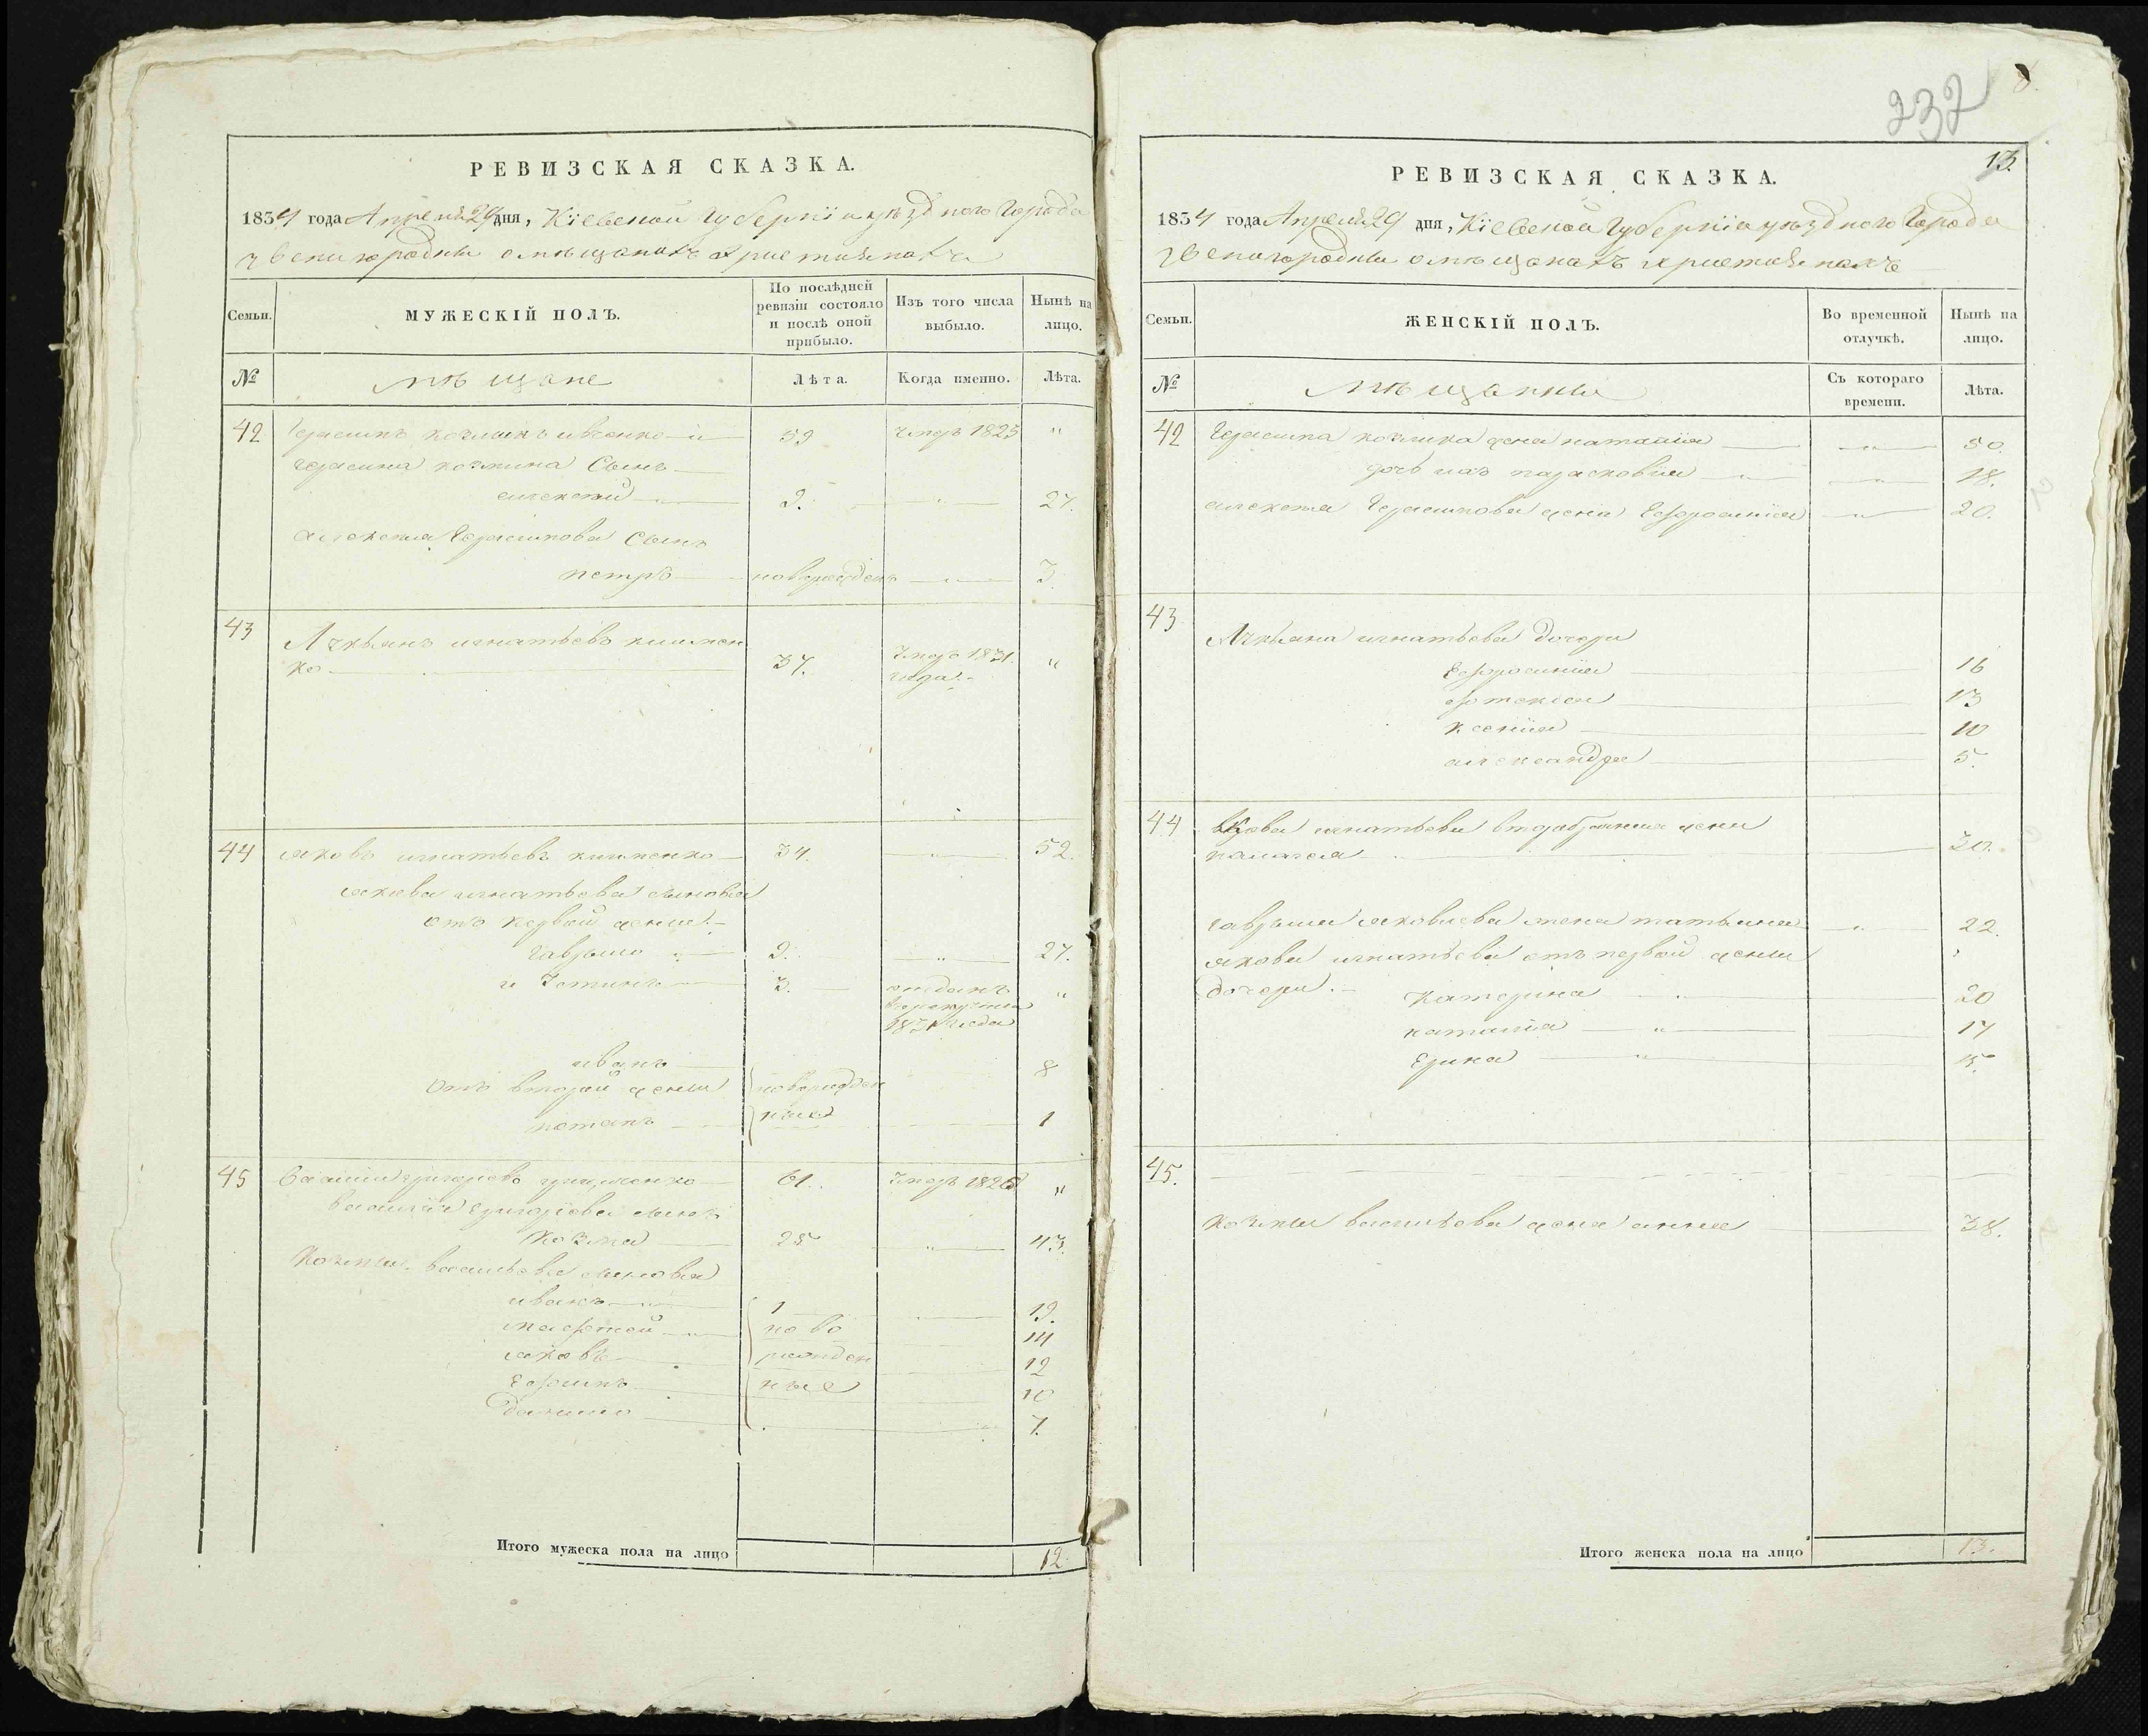 РЕВИЗСКАЯ СКАЗКА.
1834 года Апреля 29 дня, Кіевской Губерніи уезд ного Города
звенигородки о мѣщанахъ христіянахъ
Семьи.
МУЖЕСКІЙ ПОЛЪ.
По послѣдней ревизіи состояло и послѣ оной прибыло.
Изъ того числа выбыло.
Нынѣ на лицо.
№
мѣщане
Лѣта.
Когда именно.
Лѣта.
42 Герасимъ козминъ 59 умеръ 1825 "
Герасима козмина Сынъ
алексей 9. " 27.
алексея Герасимова Сынъ
петръ новорожденъ " 3.
43 игнатьевъ климен
ко 37. умеръ 1831. "
года
44 яковъ игнатьевъ клименко 34. 52.
якова игнатьева сыновья
отъ первой жены
гаврыло 9. " 27.
и 3. отданъ "
в рекруты
1831 года
иванъ 8
отъ второй жены новорожден
потапъ ные 1
45 василий григорьевъ 61. умеръ 1826 "
василия григорьева сынъ
козма 25 " 43.
козмы васильева сыновья
иванъ 1 19.
матфей ново 14
яковъ рожден 12
ефимъ ные 10
данило 7.
Итого мужеска пола на лицо 12.
232
13.
РЕВИЗСКАЯ СКАЗКА.
1834 года Апреля 29 дня, Кіевской Губерніи уездного Города
звенигородки о мѣщанахъ христіянахъ
Семьи.
ЖЕНСКІЙ ПОЛЪ.
Во временной отлучкѣ.
Нынѣ на лицо.
№
мѣщанки
Съ котораго времени.
Лѣта.
42 Герасима козмина жена наталія " 50.
дочь ихъ парасковія " 18.
алексея Герасимова жена Ефросинія " 20.
43
игнатьева дочери
Ефросинія 16
13
ксенія 10
александра 5.
44 якова игнатьева жена
палагея 30.
гаврыла яковлева жена татьяна " 22.
якова игнатьева отъ первой жены
дочери. Катерина " 20
наталія " 17
15.
45.
козмы васильева жена анна 38.
Итого женска пола на лицо 13.